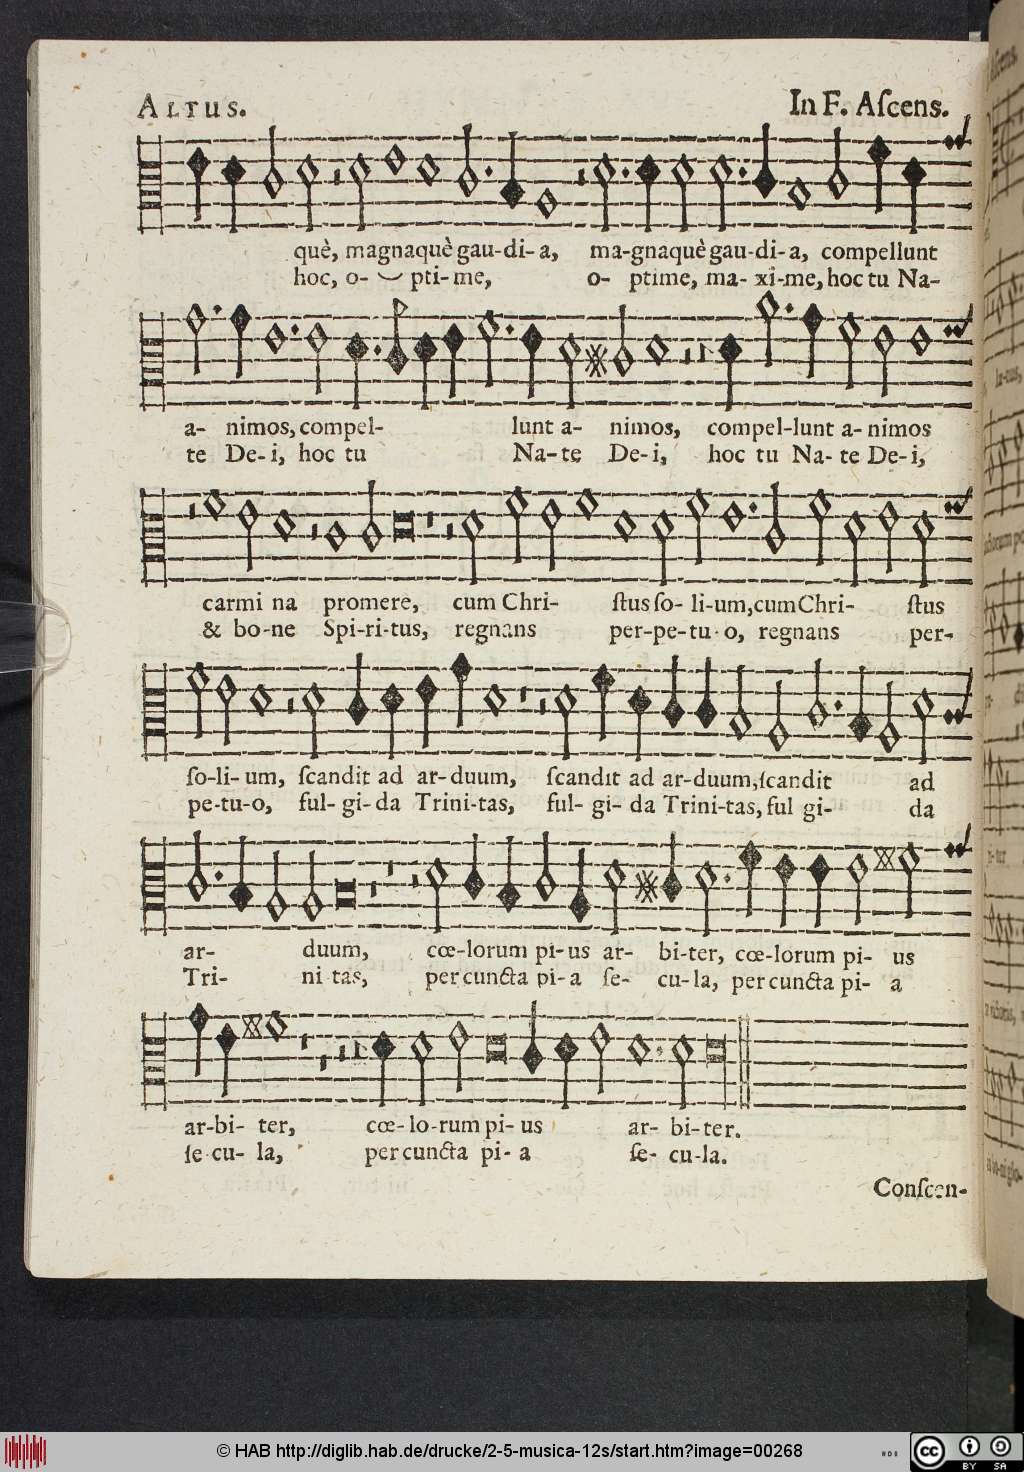 ALTUS.
In F. Aſcens.
què, magnaquè gau-di-a, ma-gnaquè gau-di-a, compellunt
hoc, o- pti-me, o- ptime, ma- xi-me, hoc tu Na-
a- nimos, compel- lunt a- nimos, compel-lunt a-nimos
te De-i, hoc tu Na-te De-i, hoc tu Na-te De-i,
carmi na promere, cum Chri- ſtus ſo- li-um, cum Chri- ſtus
& bo-ne Spi-ri-tus, regnans per-pe-tu-o, regnans per-
ſo-li-um, ſcandit ad ar-duum, ſcandit ad ar-duum, ſcandit ad
pe-tu-o, ful-gi-da Trini-tas, ful-gi-da Trini-tas, ful gi- da
ar- duum, cœ-lorum pi-us ar- bi-ter, cœ-lorum pi- us
Tri- ni tas, per cuncta pi-a ſe- cu-la, per cuncta pi- a
ar-bi-ter, cœ-lo-rum pi-us ar-bi-ter.
ſe cu-la, per cuncta pi-a ſe-cu-la.
Conſcen-
© HAB http://diglib.hab.de/drucke/2-5-musica-12s/start.htm?image=00268
cc BY SA